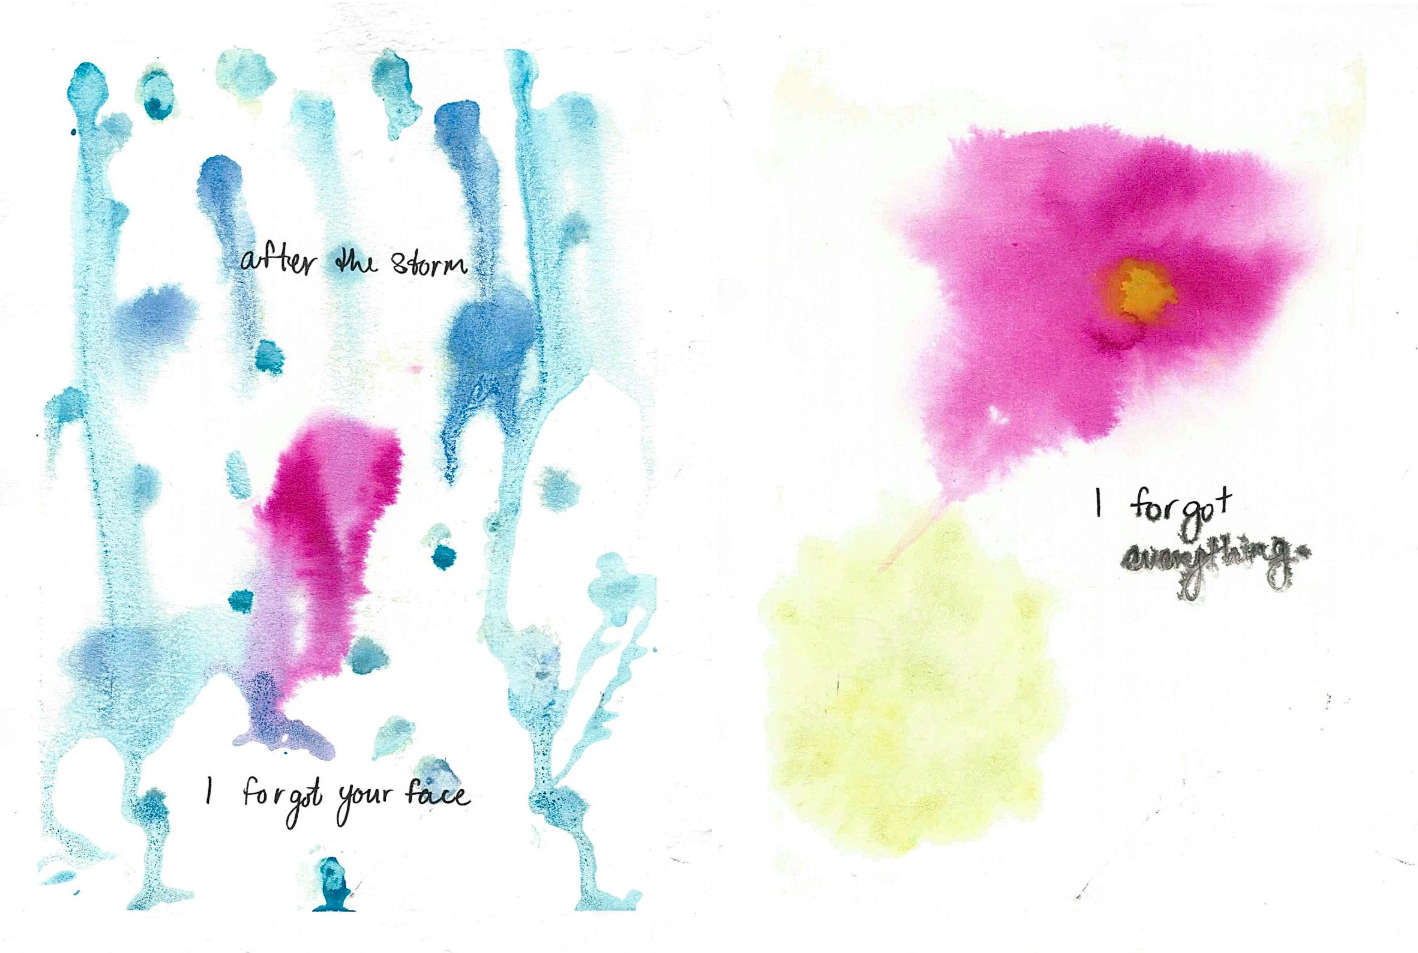 after the storm
I forgot your face
I forgot
everything.